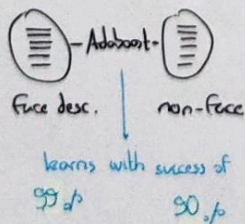 -Adaboost-
Face desc. non-face
learns with success of
99 % 90 %